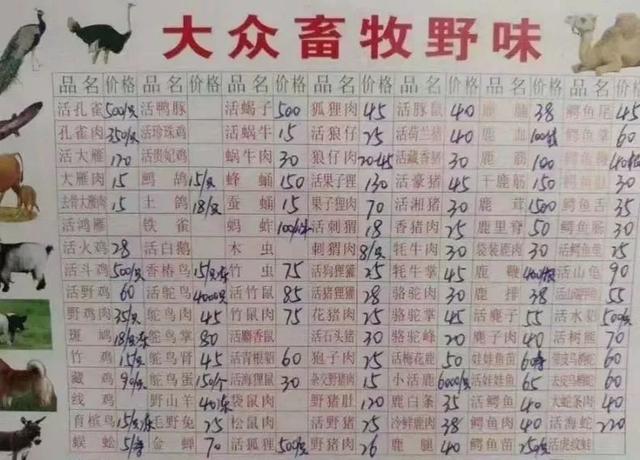 大众畜牧野味
品名 价格 品名 价格 品名 价格 品名 价格 品名 价格 品名 价格 品名 价格
活孔雀 500/只 活鸭豚 活蝎子 500 狐狸肉 45 活豚鼠 40 鹿 38 鳄鱼尾 45
孔雀肉 350/只 活珍珠鸡 活蜗牛 15 活狼仔 25 活荷兰猪 40 鹿血 鳄鱼掌 60
活大雁 120 活贵妃鸡 蜗牛肉 30 狼仔肉 活藏香猪 30 鹿筋 100 鳄鱼
大雁肉 15 鹧鸪 15/只 蜂蛹 150 活果子狸 130 活豪猪 45 干鹿筋 150 鳄鱼肚 30
去骨大雁肉 15 土鸽 18/只 蚕蛹 15 果子狸肉 70 活湘猪 30 鹿茸 1500 鳄鱼舌 35
活鸿雁 铁雀 蚂蚱 活刺猬 18 香猪肉 25 鹿里脊 50 鳄鱼肠 30
活火鸡 28 活白鹅 木虫 刺猬肉 8/只 牦牛肉 30 袋装鹿肉 30 活鳄鱼龟 25
活斗鸡 500/只 香椿鸟 竹虫 75 活狗狸獾 25 牦牛掌 45 鹿鞭 活山龟 90
活野鸡 60 活鸵鸟 4000/只 活竹鼠 85 活猪狸獾 28 骆驼肉 30 鹿排 38 55
野鸡肉 35/只 鸵鸟肉 45 竹鼠肉 75 花猪肉 25 骆驼掌 45 活麂子 55 活水貂
斑鸠 鸵鸟掌 80 活麝香鼠 活石头猪 30 骆驼峰 20 麂子肉 40 活树熊 70
竹鸡 15/只 鸵鸟肾 45 活青根貂 60 狍子肉 25 活梅花鹿 50 娃娃鱼苗 60
藏鸡 90/只 鸵鸟蛋 150/个 活海狸鼠 30 杂交野猪肉 15 小活鹿 6000/只 活娃娃鱼 65 60
线鸡 野山羊 袋鼠肉 野猪肚 120 鹿白条 35 活鳄鱼 40 大蛇条肉 40
育槟鸟 毛野兔 25 松鼠肉 活野猪 25 冷鲜鹿肉 38 鳄鱼肉 40 活海蛇 220
蜈蚣 金蝉 70 活狐狸 500/只 野猪肉 26 鹿腿 40 鳄鱼苗 活虎纹蛙